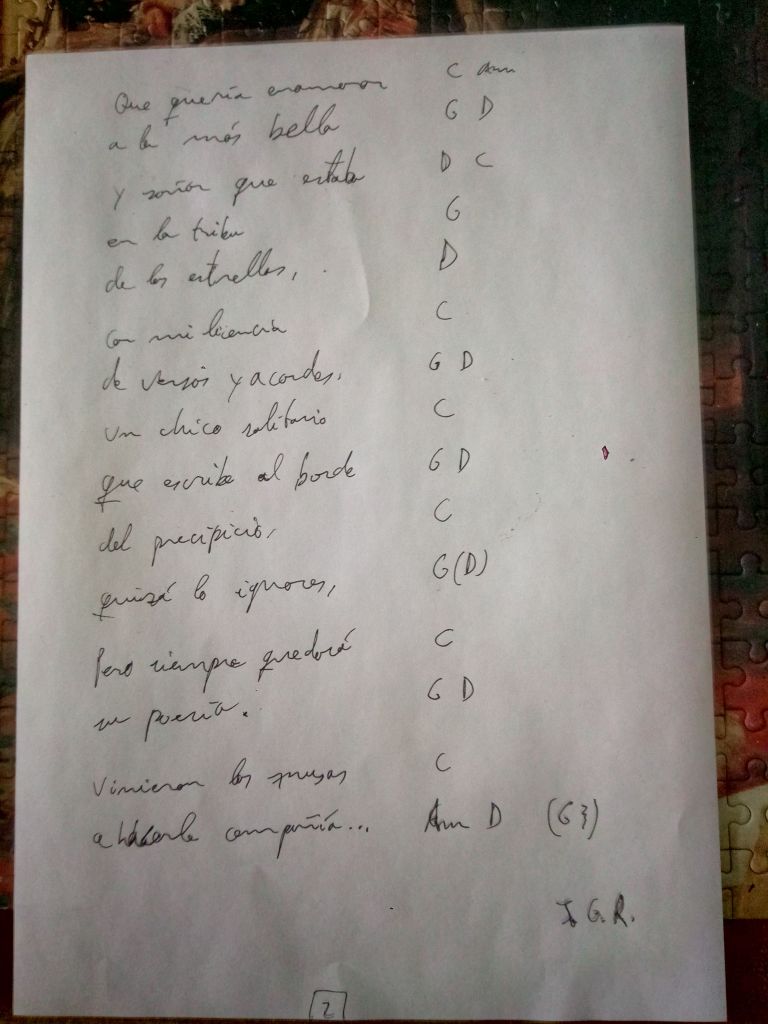 Que quería enamorar C Am
a la más bella G D
Y soñar que estaba D C
en la tribu G
de las estrellas, D
con mi licencia C
de versos y acordes, G D
un chico solitario C
que escribe al borde G D
del precipicio, C
quizá lo ignores, G(D)
Pero siempre quedará C
su poesía. G D
Vinieron las musas C
a hacerle compañía... Am D (G})
J.G.R.
2